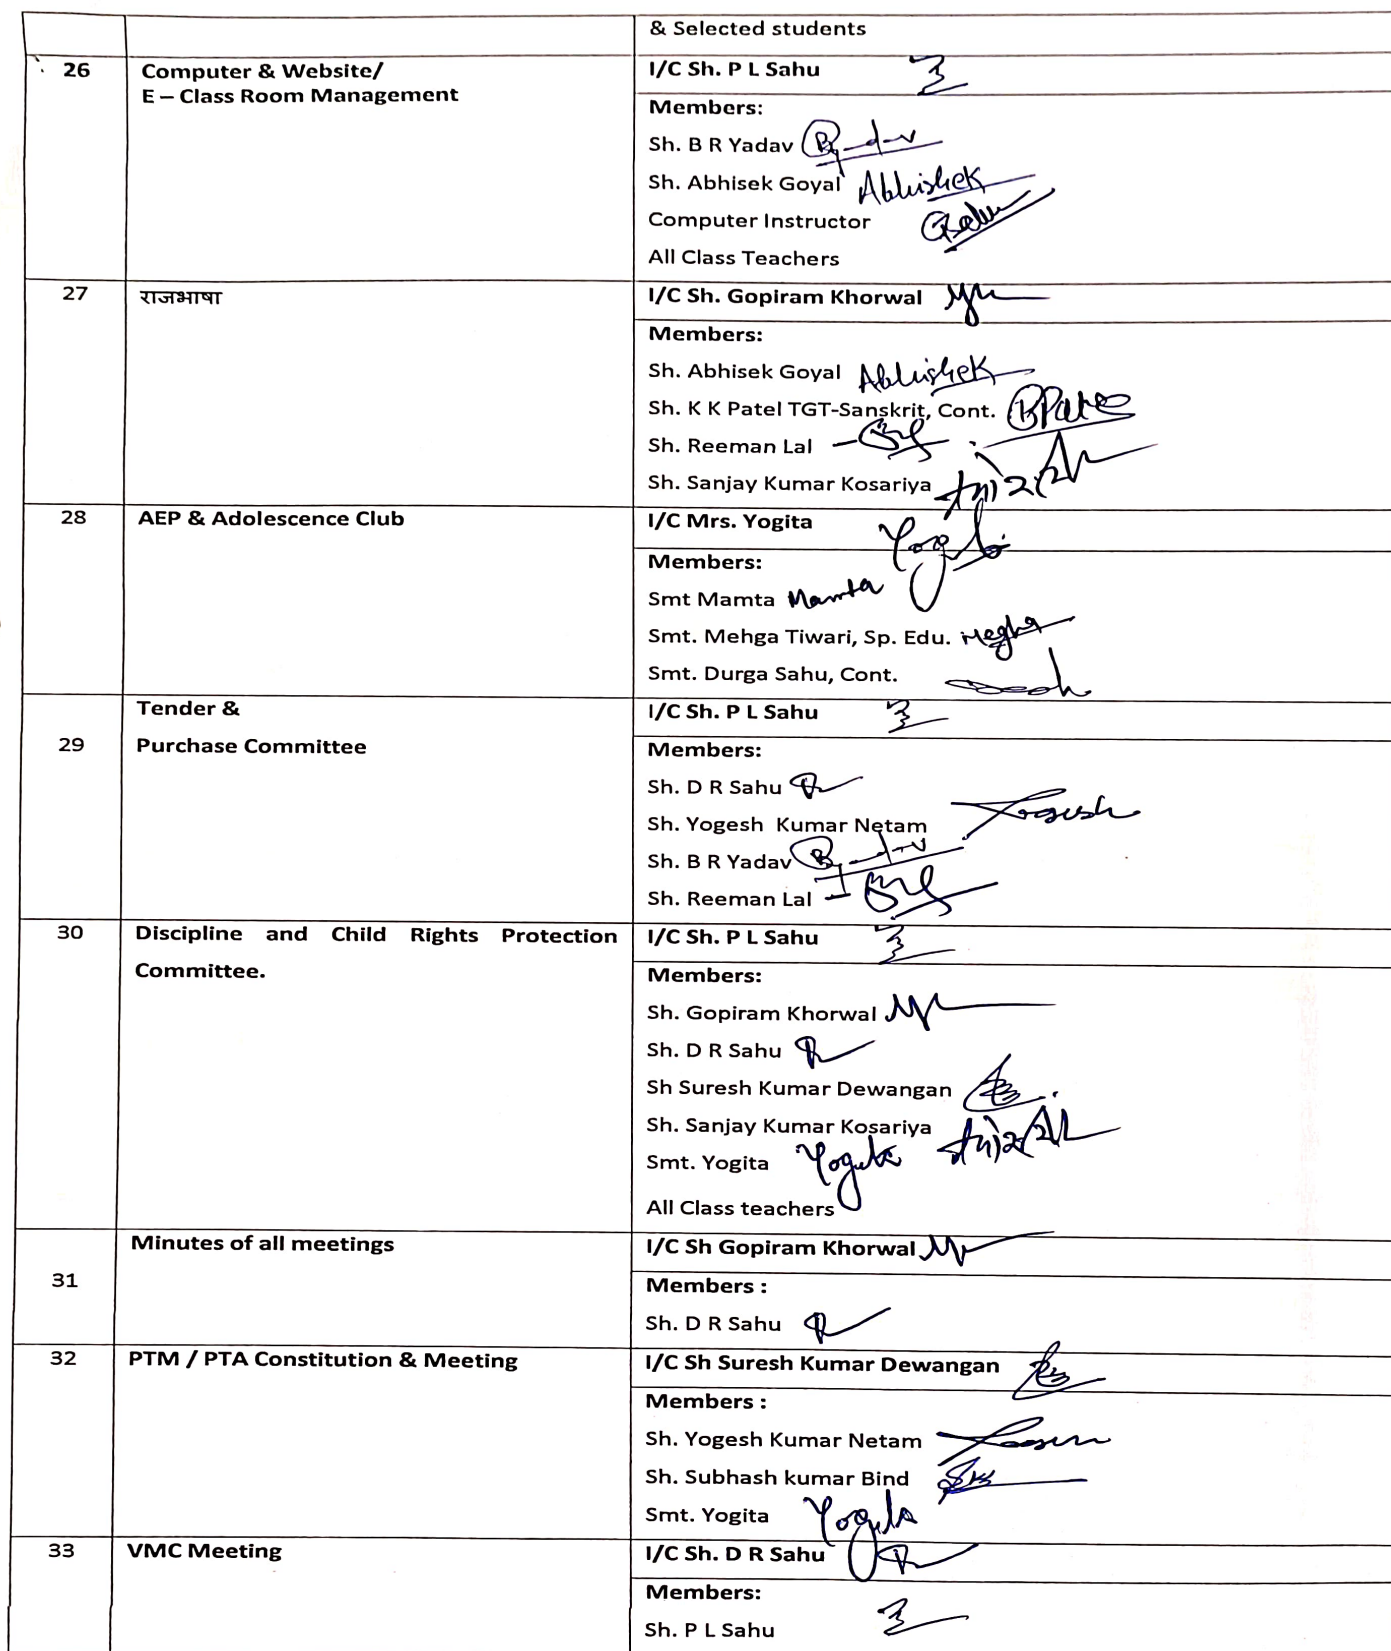 & Selected students
26 Computer & Website/ I/C Sh. P L Sahu
E – Class Room Management
Members:
Sh. B R Yadav
Sh. Abhisek Goyal Abhishek
Computer Instructor
All Class Teachers
27 राजभाषा I/C Sh. Gopiram Khorwal
Members:
Sh. Abhisek Goyal Abhishek
Sh. K K Patel TGT-Sanskrit, Cont.
Sh. Reeman Lal
Sh. Sanjay Kumar Kosariya
28 AEP & Adolescence Club I/C Mrs. Yogita Yogita
Members:
Smt Mamta Mamta
Smt. Mehga Tiwari, Sp. Edu. Megha
Smt. Durga Sahu, Cont.
Tender & I/C Sh. P L Sahu
29 Purchase Committee Members:
Sh. D R Sahu
Sh. Yogesh Kumar Netam Yogesh
Sh. B R Yadav
Sh. Reeman Lal
30 Discipline and Child Rights Protection I/C Sh. P L Sahu
Committee. Members:
Sh. Gopiram Khorwal
Sh. D R Sahu
Sh Suresh Kumar Dewangan
Sh. Sanjay Kumar Kosariya
Smt. Yogita Yogita
All Class teachers
Minutes of all meetings I/C Sh Gopiram Khorwal
31 Members :
Sh. D R Sahu
32 PTM / PTA Constitution & Meeting I/C Sh Suresh Kumar Dewangan
Members :
Sh. Yogesh Kumar Netam
Sh. Subhash kumar Bind
Smt. Yogita Yogita
33 VMC Meeting I/C Sh. D R Sahu
Members:
Sh. P L Sahu